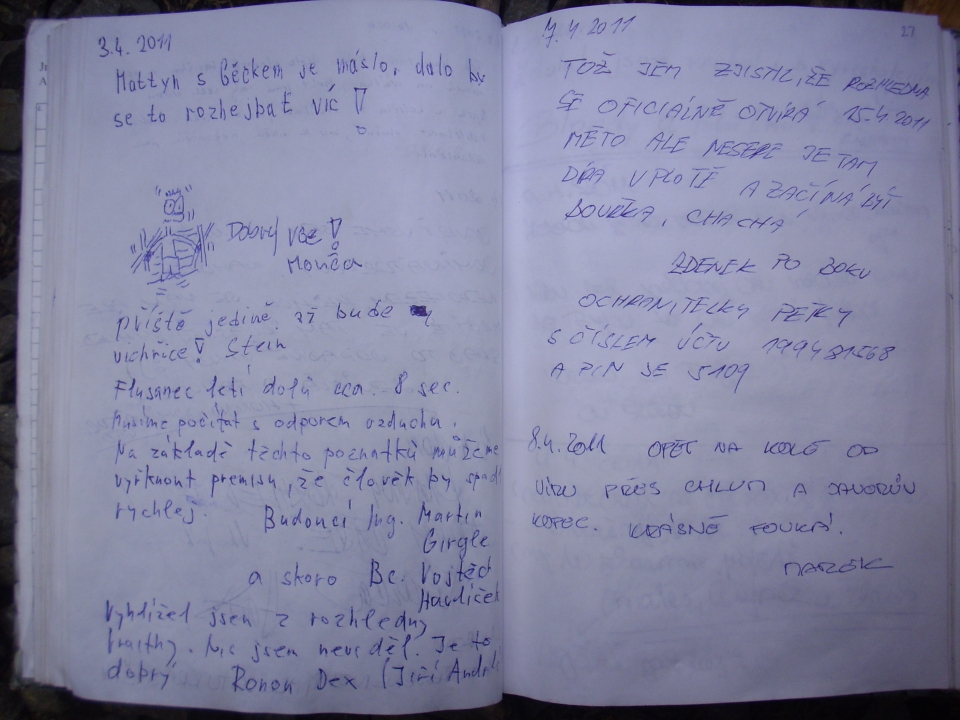 3.4. 2011
Mattyn s Béčkem je máslo, dalo by
se to rozhejbat víc !
Dobrý vóe !
Monča
příště jedině, až bude
vichřice! Stein
Flusanec letí dolů cca. 8 sec.
Musíme počítat s odporem vzduchu.
Na základě těchto poznatků můžeme
vyřknout premisu, že člověk by spadl
rychlej.
Budoucí Ing. Martin
Girgle
a skoro Bc. Vojtěch
Havlíček
Vyhlížel jsem z rozhledny
wraithy. Nic jsem neviděl. Je to
dobrý Ronon Dex (Jiří
7.4 2011
27
TOŽ JEM ZJISTIL, ŽE ROZHLEDNA
SE OFICIÁLNĚ OTVÍRÁ 15.4 2011
MĚTO ALE NESERE JE TAM
DÍRA V PLOTĚ A ZAČÍNÁ BÝT
BOUŘKA, CHACHÁ
ZDENEK PO BOKU
OCHRANITELKY PEŤKY
S ČÍSLEM ÚČTU 199481568
A PIN JE 5109
8.4. 2011 OPĚT NA KOLE OD
VÍRU PŘES CHLUM A JAVORŮV
KOPEC. KRÁSNĚ FOUKÁ!
MAREK